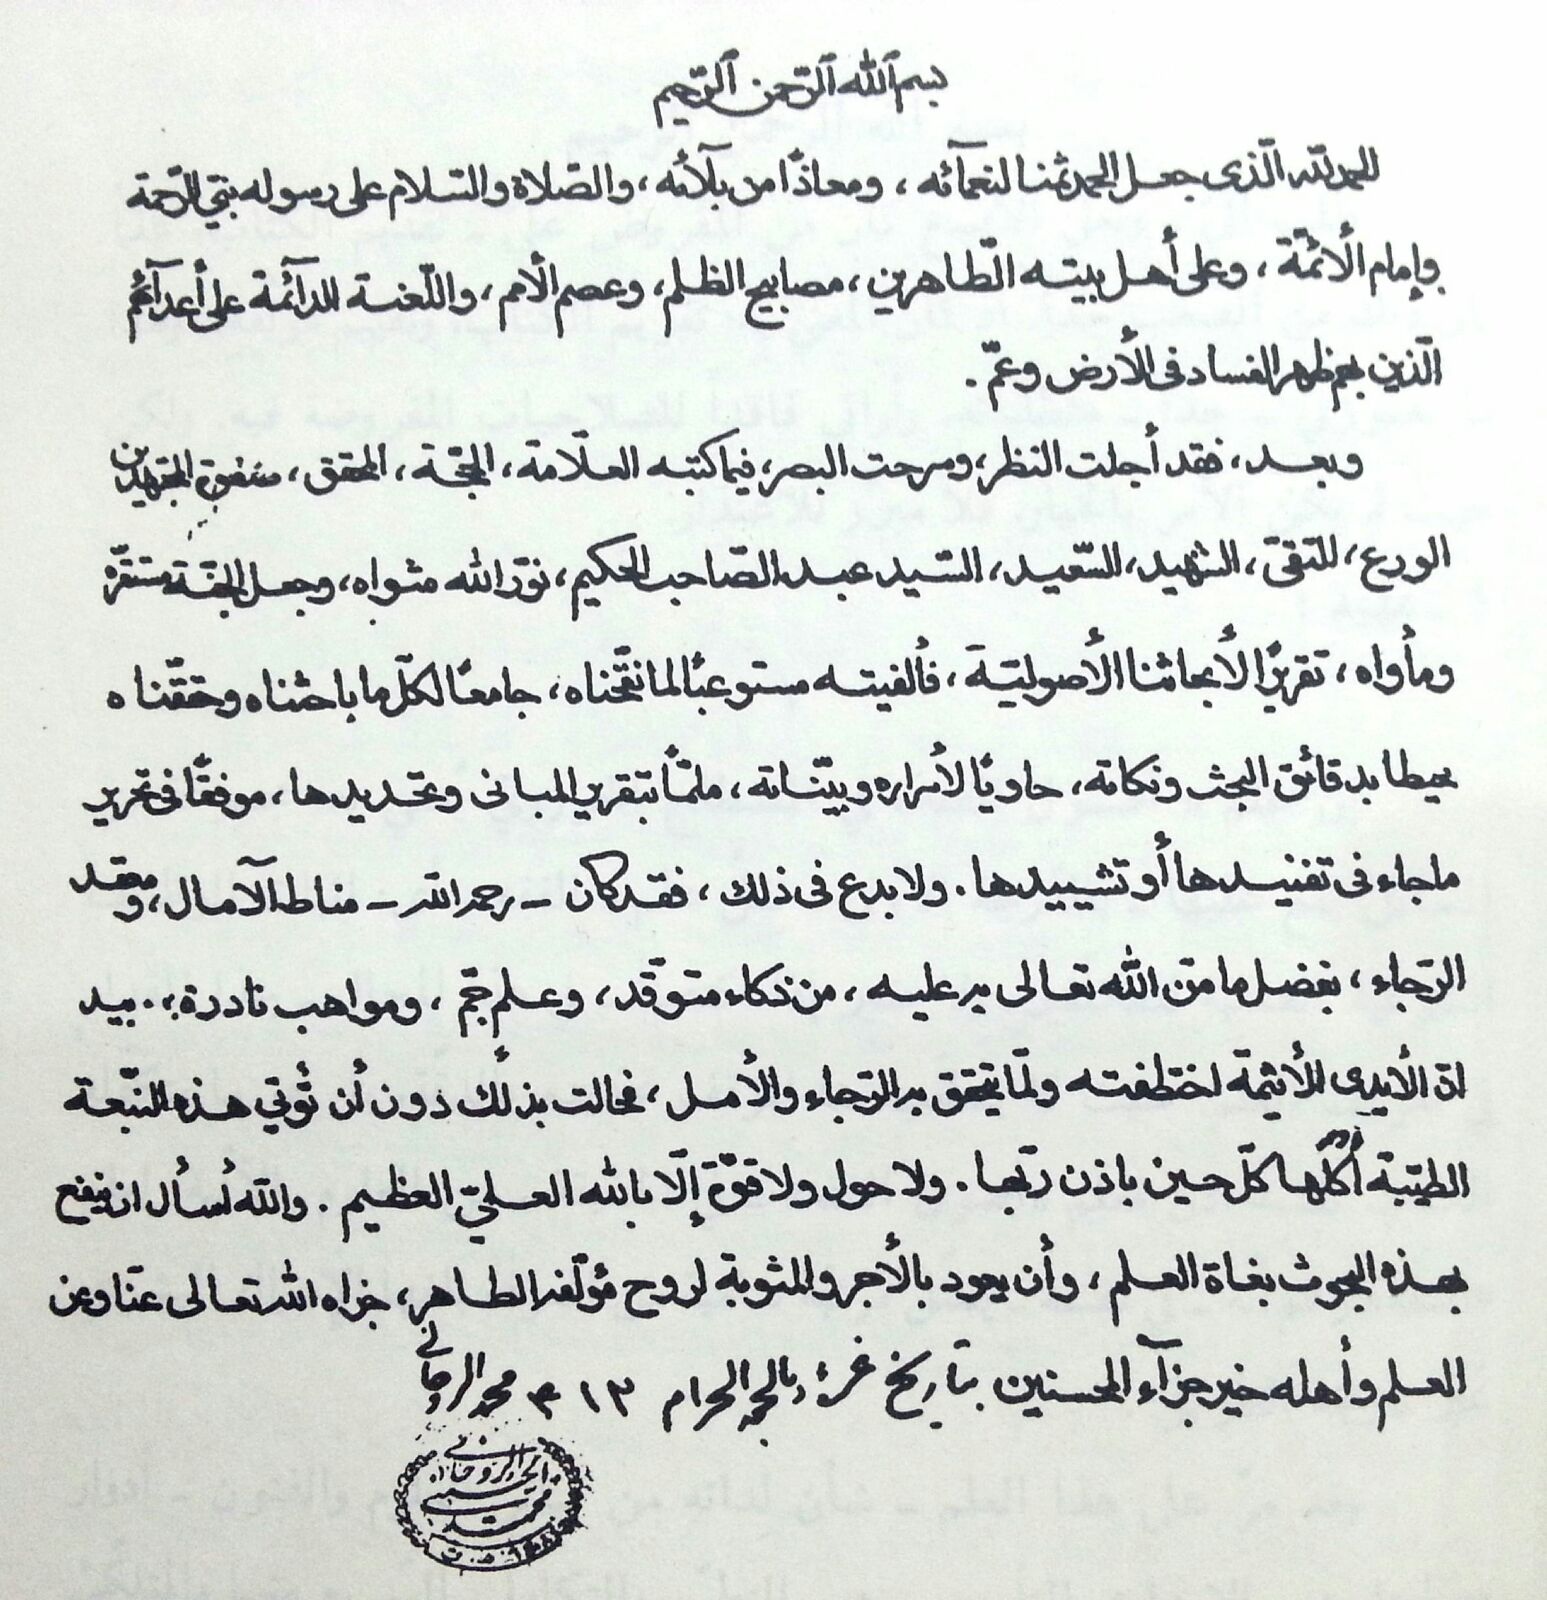 بسم الله الرّحمن الرّحيم
الحمد لله الّذي جعل الحمد ثمنا لنعمآئه، ومعاذًا من بلآئه، والصّلاة والسّلام على رسوله نبيّ الرّحمة
وإمام الأئمّة، وعلى أهل بيته الطّاهرين، مصابيح الظلم، وعصم الأمم، واللّعنة الدآئمة على أعدآئهم
الّذين بهم ظهر الفساد في الأرض وعمّ.
وبعد، فقد أجلت النظر، وسرحت البصر، فيما كتبه العلّامة، الحجّة، المحقق، صفوة المجتهدين
الورع، التقيّ، الشهيد، السّعيد، السّيد عبد الصّاحب الحكيم، نوّر الله مثواه، وجعل الجنّة مستقرّه
ومأواه، تقريرًا لأبحاثنا الأصوليّة، فألفيته مستوعبًا لما نقّحناه، جامعًا لكلّ ما باحثناه وحقّقناه
محيطا بدقائق البحث ونكاته، حاويًا لأسراره وبيّناته، ملمًّا بتقرير المباني وتحديدها، موفقًا في تحرير
ماجاء في تفنيدها أو تشييدها. ولا بدع في ذلك، فقد كان – رحمه الله – مناط الآمال، ومعقد
الرّجاء، بفضل ما منّ الله تعالى به عليه، من ذكاء متوّقد، وعلم جمّ، ومواهب نادرة؛ بيد
انّ الأيدي الأثيمة اختطفته ولمّا يتحقق به الرّجاء والأمل، فحالت بذلك دون أن تؤتي هذه النّبعة
الطيّبة أكلها كلّ حين باذن ربّها. ولا حول ولا قوّة إلّا بالله العليّ العظيم. والله أسأل ان ينفع
بهذه البحوث بغاة العلم، وأن يعود بالأجر والمثوبة لروح مؤلّفه الطاهر، جزاه الله تعالى عنّا وعن
العلم وأهله خير جزآء المحسنين بتاريخ غرة ذي الحجة الحرام ١٤١٣ محمد الروحاني
محمد الحسيني الروحاني